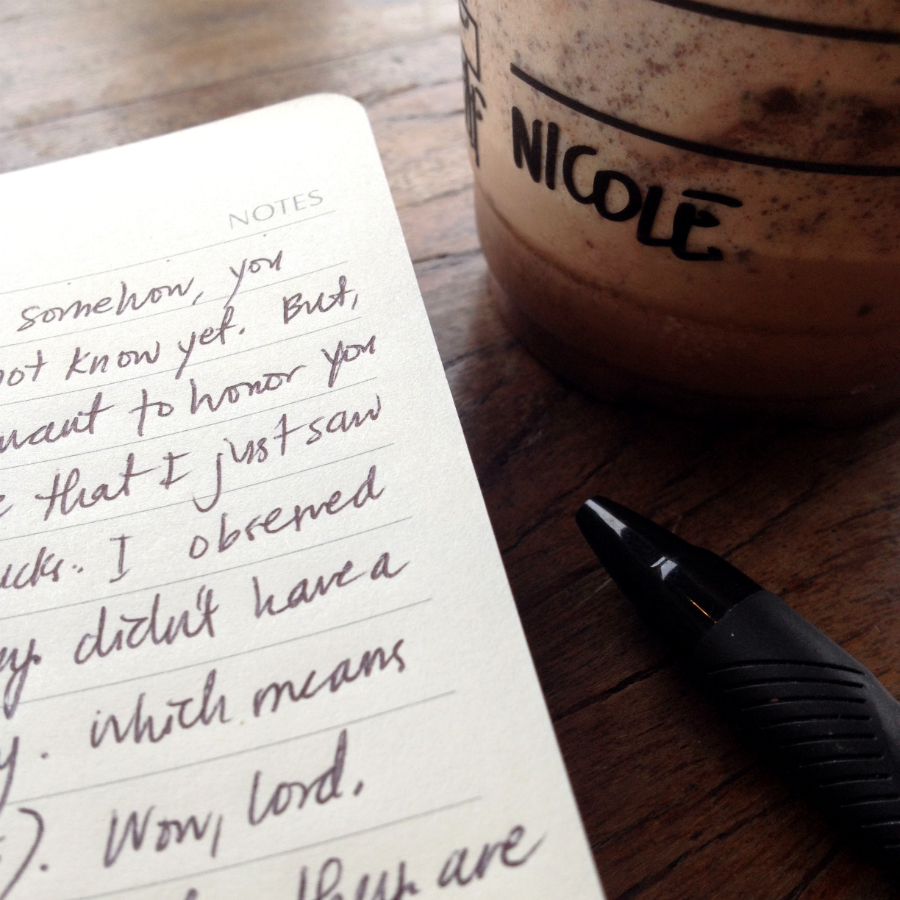 NOTES
somehow, you
not know yet. But,
want to honor you
that I just saw
ucks. I observed
ey. didn't have a
y. which means
). Wow, Lord.
they are
NICOLE